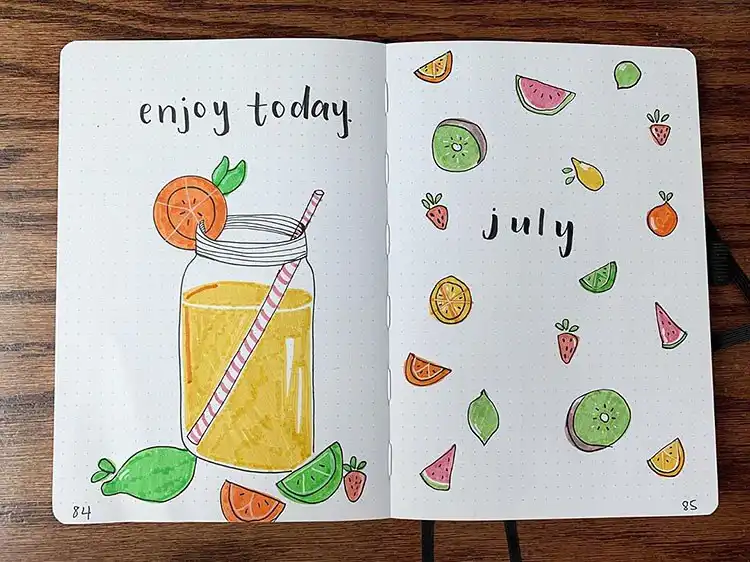 enjoy today.
july
84
85